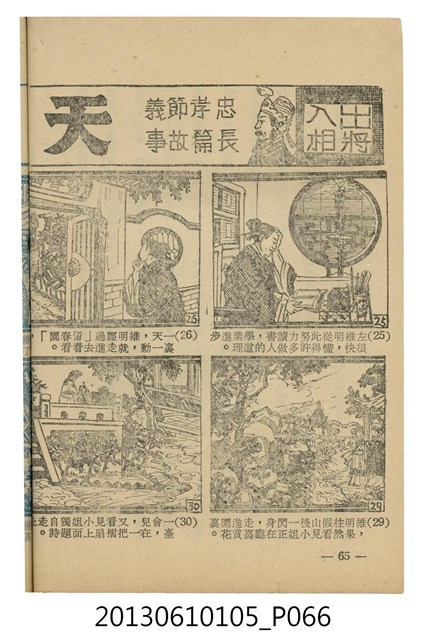 出將
入相
忠孝節義
長篇故事
天
25
(25)左維明從此努力讀書,學業進步
很快,懂得許多做人的道理。
26
(26)一天,維明經過「留春園」
裏一動,就走進去看看。
29
(29)維明往假山後一閃身,走進園裏
,果然看見小姐正在廳裏賞花。
30
(30)一會兒,又看見小姐獨自走上
臺,在一把摺扇上面題詩。
— 65 —
20130610105_P066